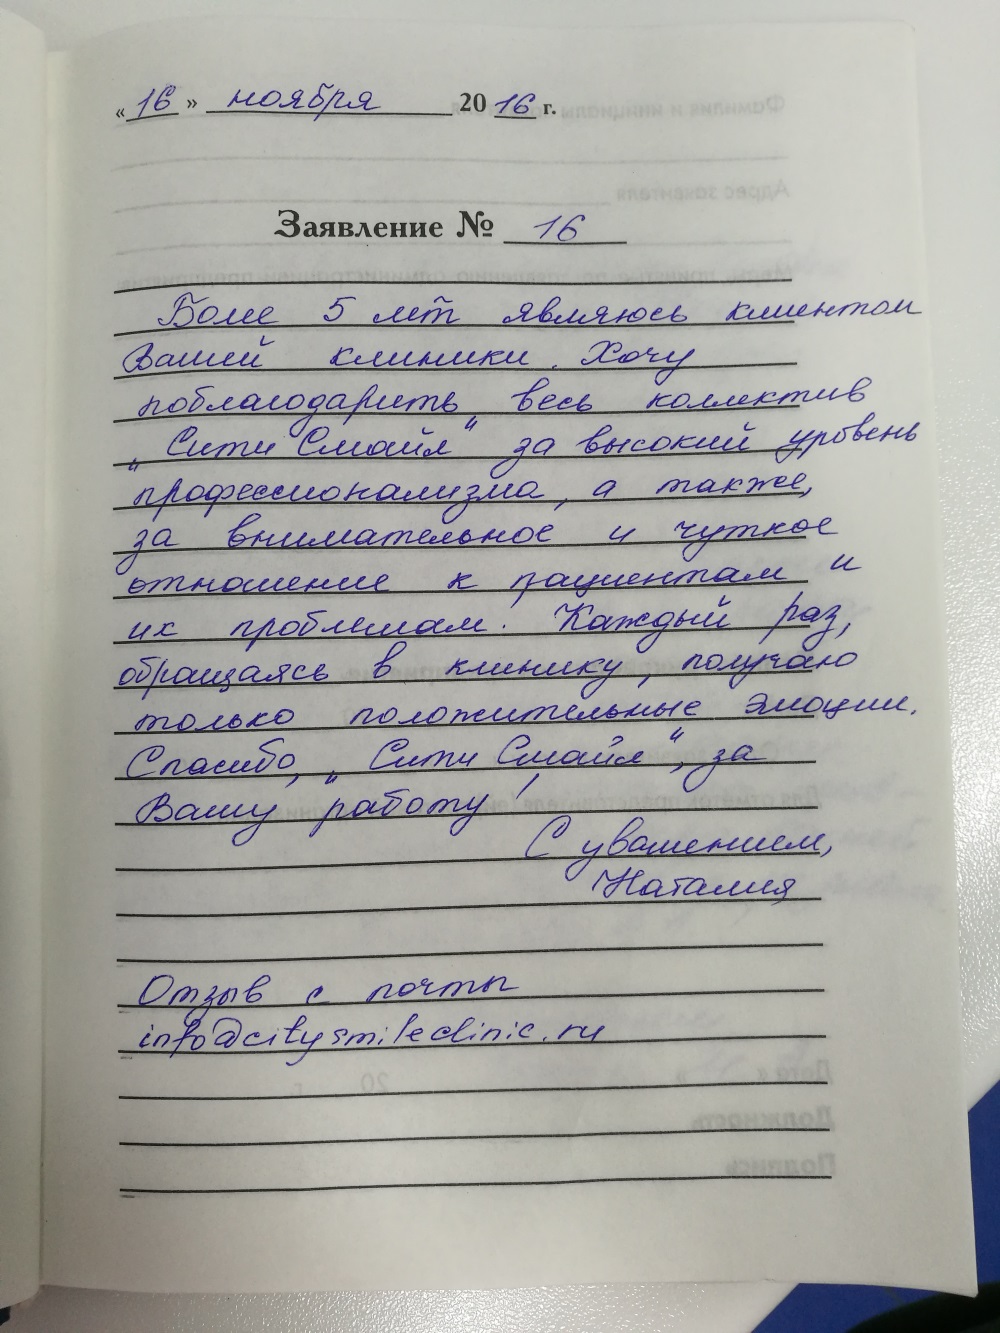 «16» ноября 2016 г.
Заявление № 16
Более 5 лет являюсь клиентом
Вашей клиники. Хочу
поблагодарить весь коллектив
„Сити Смайл“ за высокий уровень
профессионализма, а также,
за внимательное и чуткое
отношение к пациентам и
их проблемам. Каждый раз,
обращаясь в клинику, получаю
только положительные эмоции.
Спасибо, „Сити Смайл“, за
Вашу работу!
С уважением,
Наталия
Отзыв с почты
info@citysmileclinic.ru